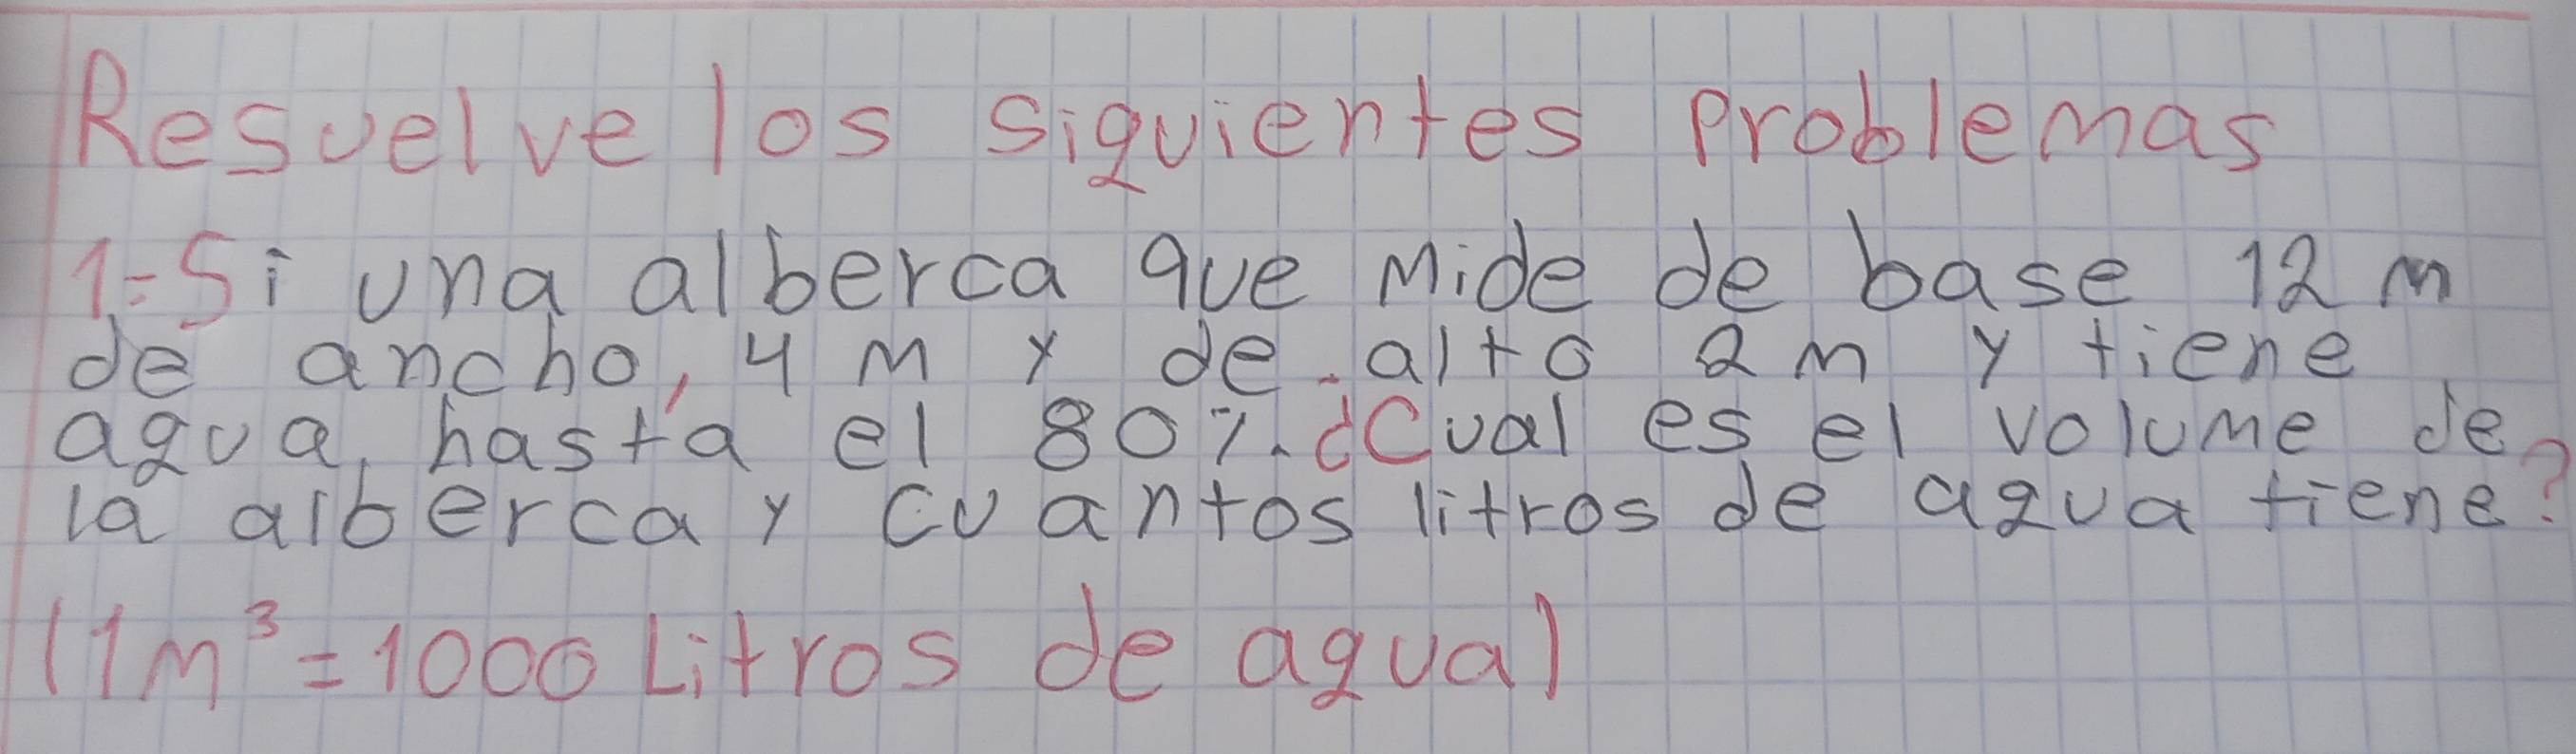 Resuelve los siguientes problemas
1-Si una alberca que mide de base 12 m
de ancho, 4 m y de alto 2 m y tiene
agua, hasta el 80%. ¿Cual es el volume de
la alberca y cuantos litros de agua tiene?
(1m³ = 1000 Litros de agua)